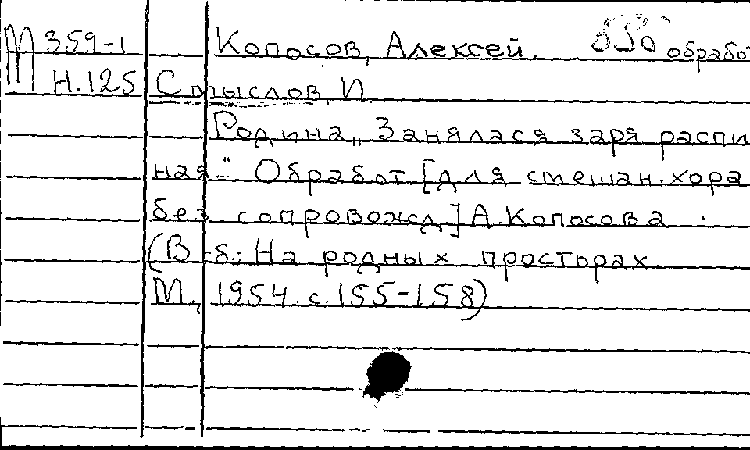 М 359-1 Копосов, Алексей. обрабо
Н.125 Смыслов, И.
Родина „Занялася заря распи
ная“. Обработ. [для смешан. хора
без сопровожд.] А. Копосова.
(В сб.: На родных просторах
М., 1954 с. 155-158)